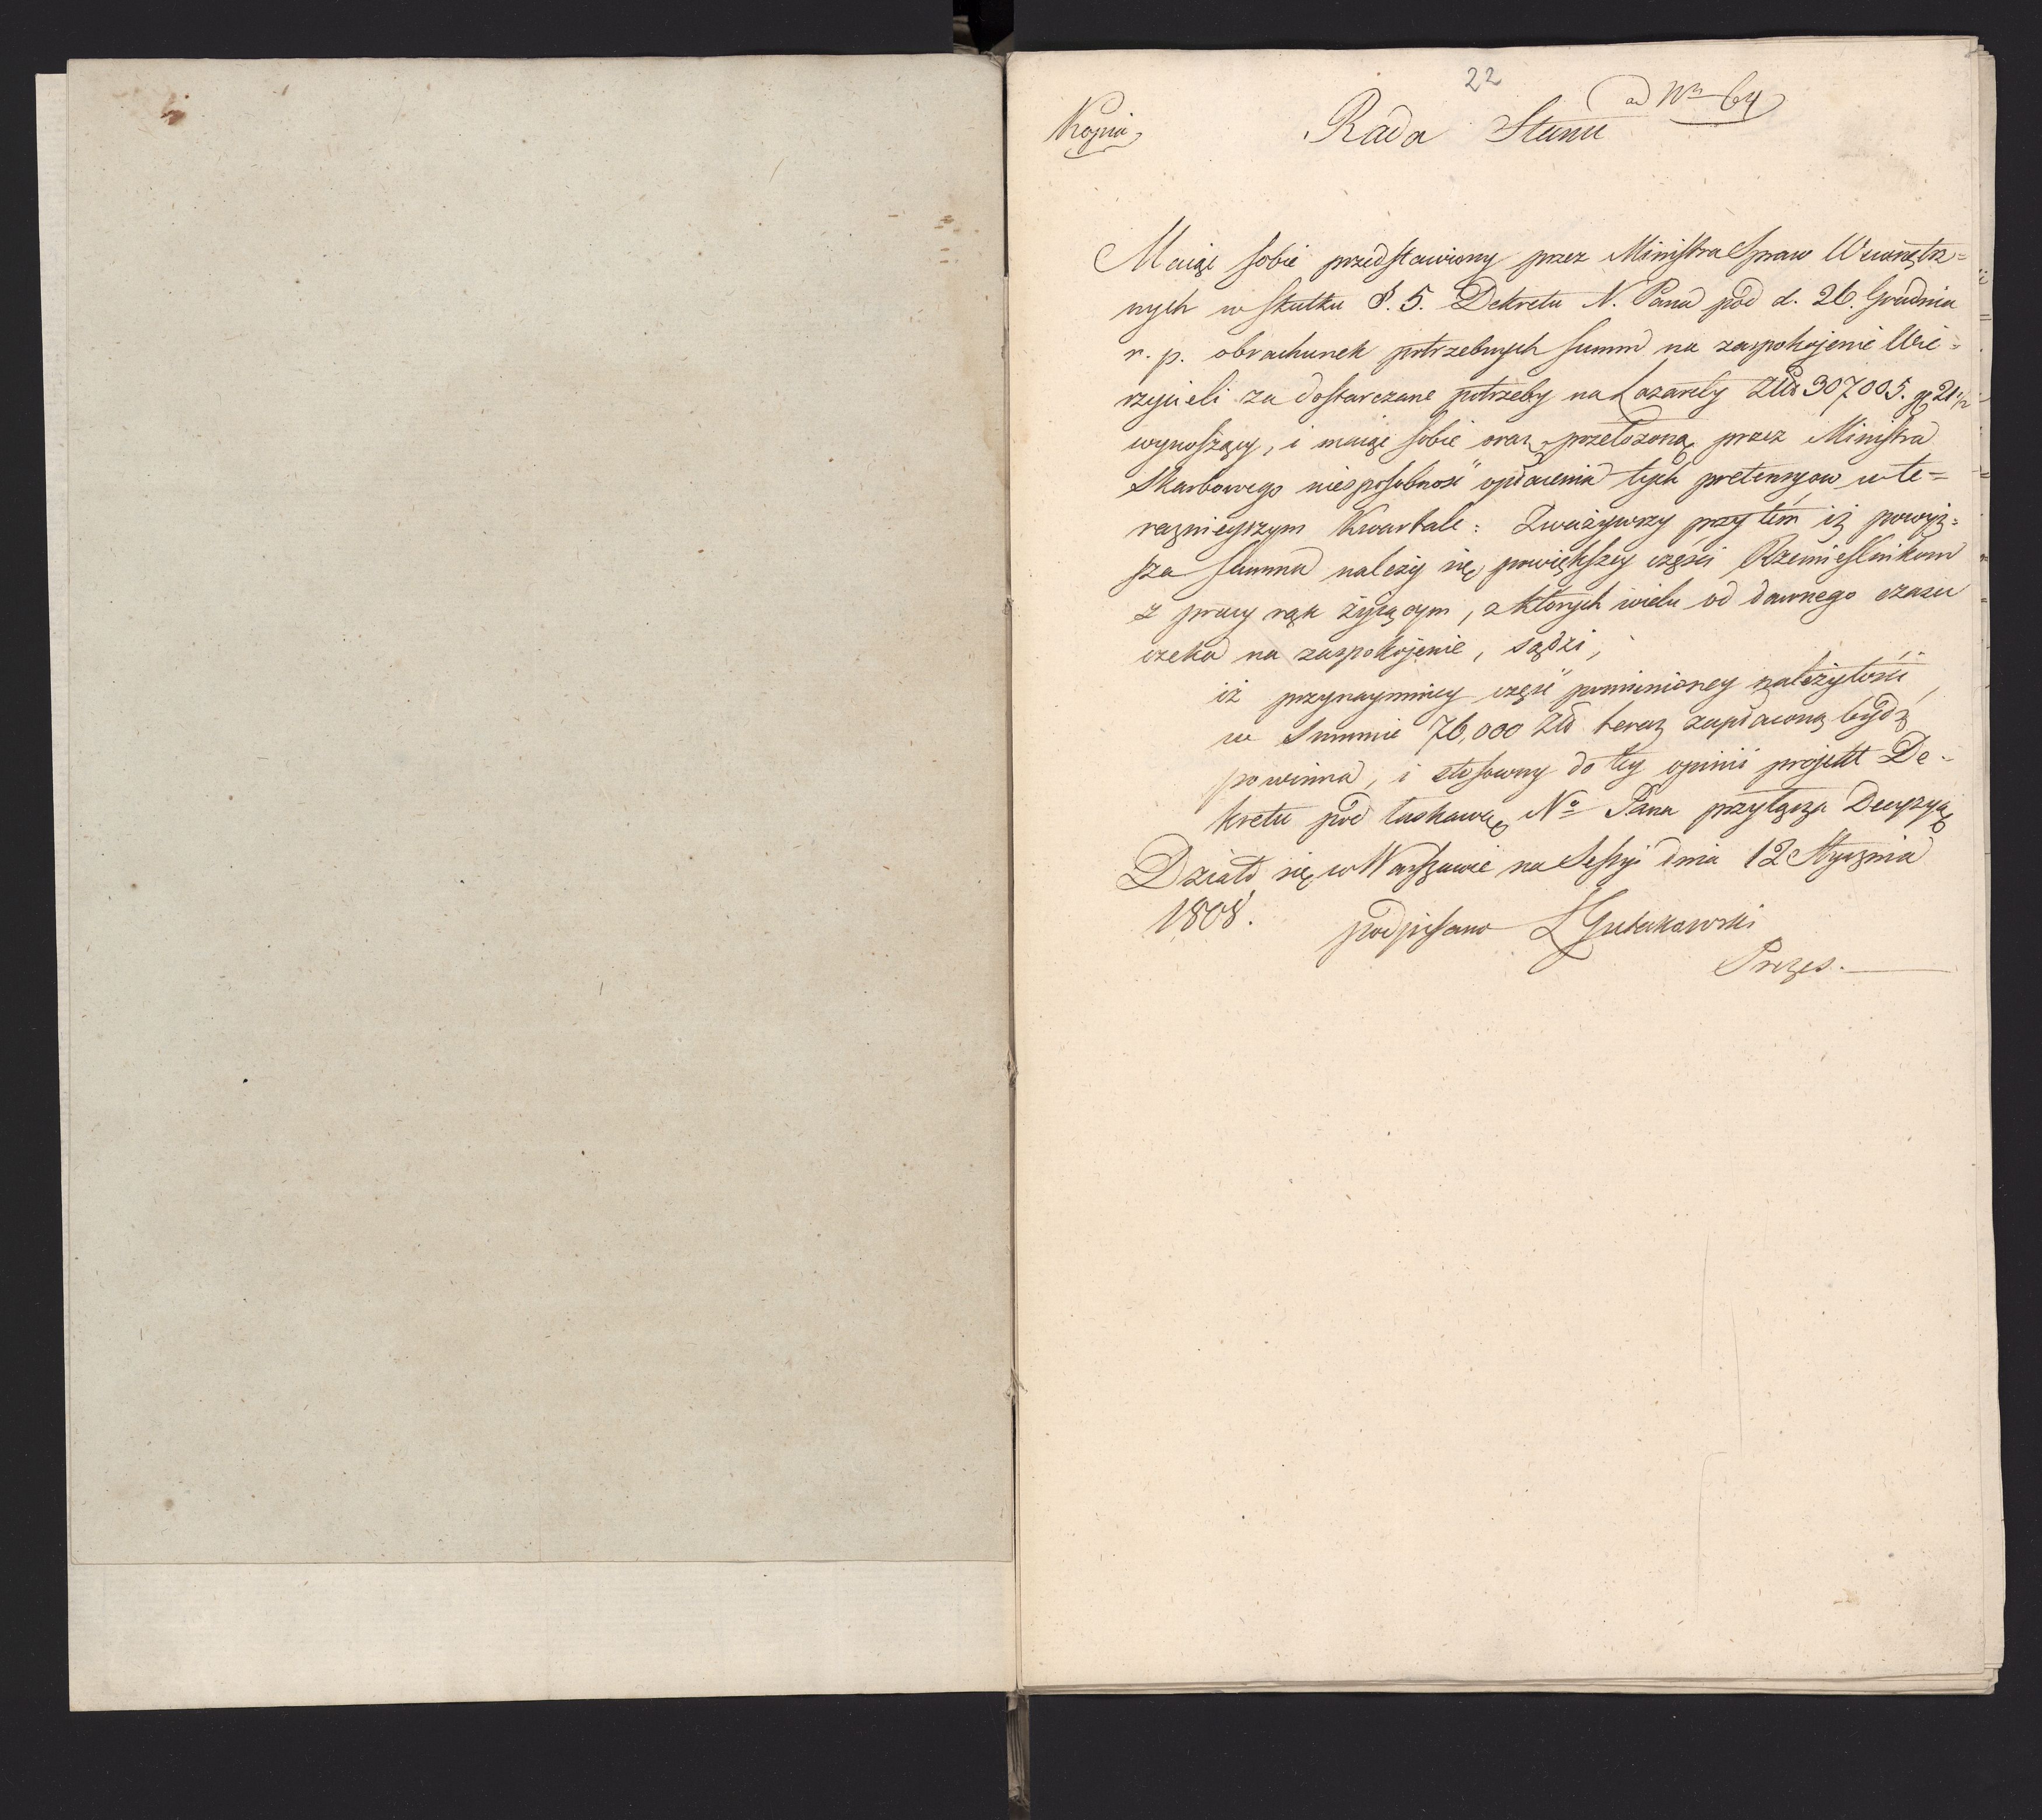 22
ad Nr 64
Kopia
Rada Stanu
Maiąc sobie przedstawiony przez Ministra Spraw Wewnętrz=
nych w skutku §. 5. Dekretu N. Pana pod d. 26. Grudnia
r. p. obrachunek potrzebnych summ na zaspokojenie Wie=
rzycieli za dostarczane potrzeby na Lazarety Złł 307005. gr 21 1/2
wynoszący, i maiąc sobie oraz przełożoną przez Ministra
Skarbowego niesposobność opłacenia tych pretensyow w te=
raznieyszym Kwartale: Zważywszy przytém iż powyż=
sza summa należy się powiększey części Rzemieslnikom
z pracy rąk żyiącym, z ktorych wielu od dawnego czasu
czeka na zaspokojenie, sądzi,
iż przynaymniey część pomienioney należytości
w Summie 76,000 Złł teraz zapłaconą bydź
powinna, i stosowny do tey opinii projekt De=
kretu pod łaskawą No Pana przyłącza Decyzyą
Działo się w Warszawie na Sessyi dnia 12 Stycznia
1808. podpisano L Gutakowski
Prezes.